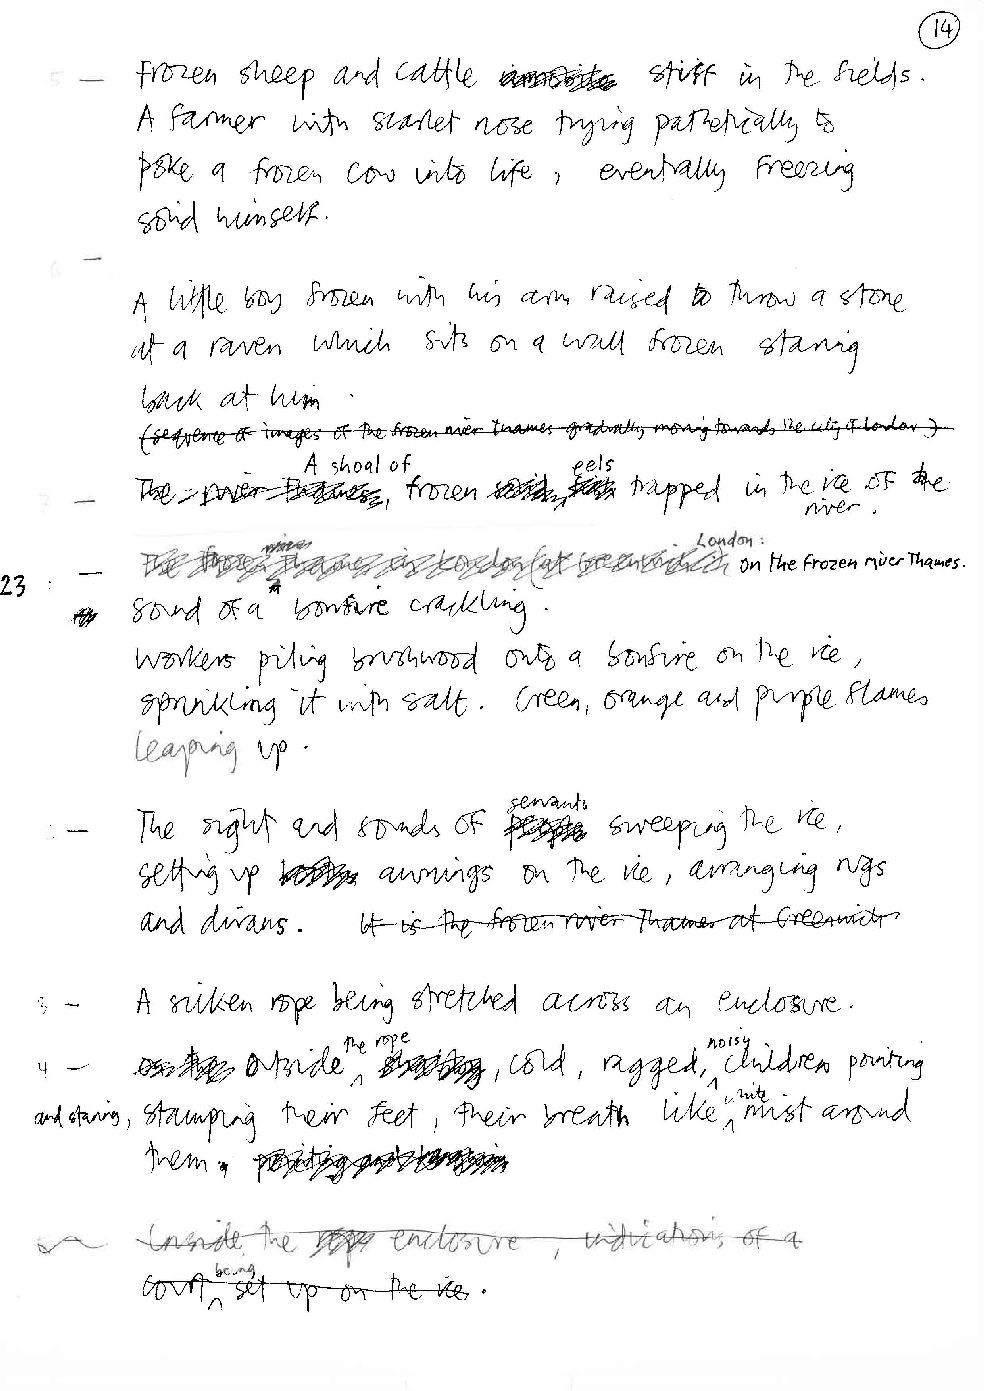 14
5 — Frozen sheep and cattle stiff in the fields.
A farmer with scarlet nose trying pathetically to
poke a frozen cow into life, eventually freezing
solid himself.
6 —
A little boy frozen with his arm raised to throw a stone
at a raven which sits on a wall frozen staring
back at him.
(sequence of images of the frozen river Thames gradually moving towards the city of London)
A shoal of eels
7 — The river Thames, frozen trapped in the ice of the
river.
London:
The frozen Thames in London (at Greenwich) on the frozen river Thames.
23 : —
Sound of a bonfire crackling.
Workers piling brushwood onto a bonfire on the ice,
sprinkling it with salt. Green, orange and purple flames
leaping up.
servants
— The sight and sounds of people sweeping the ice,
setting up awnings on the ice, arranging rugs
and divans. It is the frozen river Thames at Greenwich
3 — A silken rope being stretched across an enclosure.
the rope noisy
4 — Outside ^ , cold, ragged, ^ children pointing
white
and staring, stamping their feet, their breath like ^ mist around
them. 
Inside the rope enclosure, indications of a
being
court ^ set up on the ice.